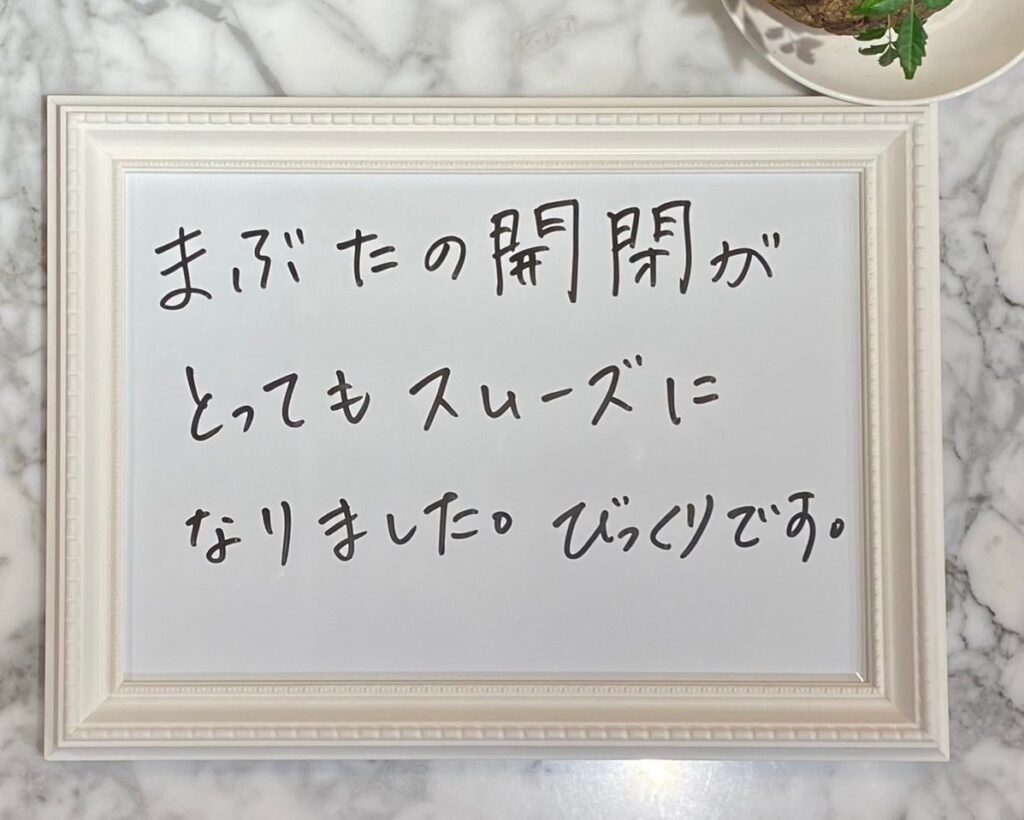 まぶたの開閉が
とってもスムーズに
なりました。びっくりです。